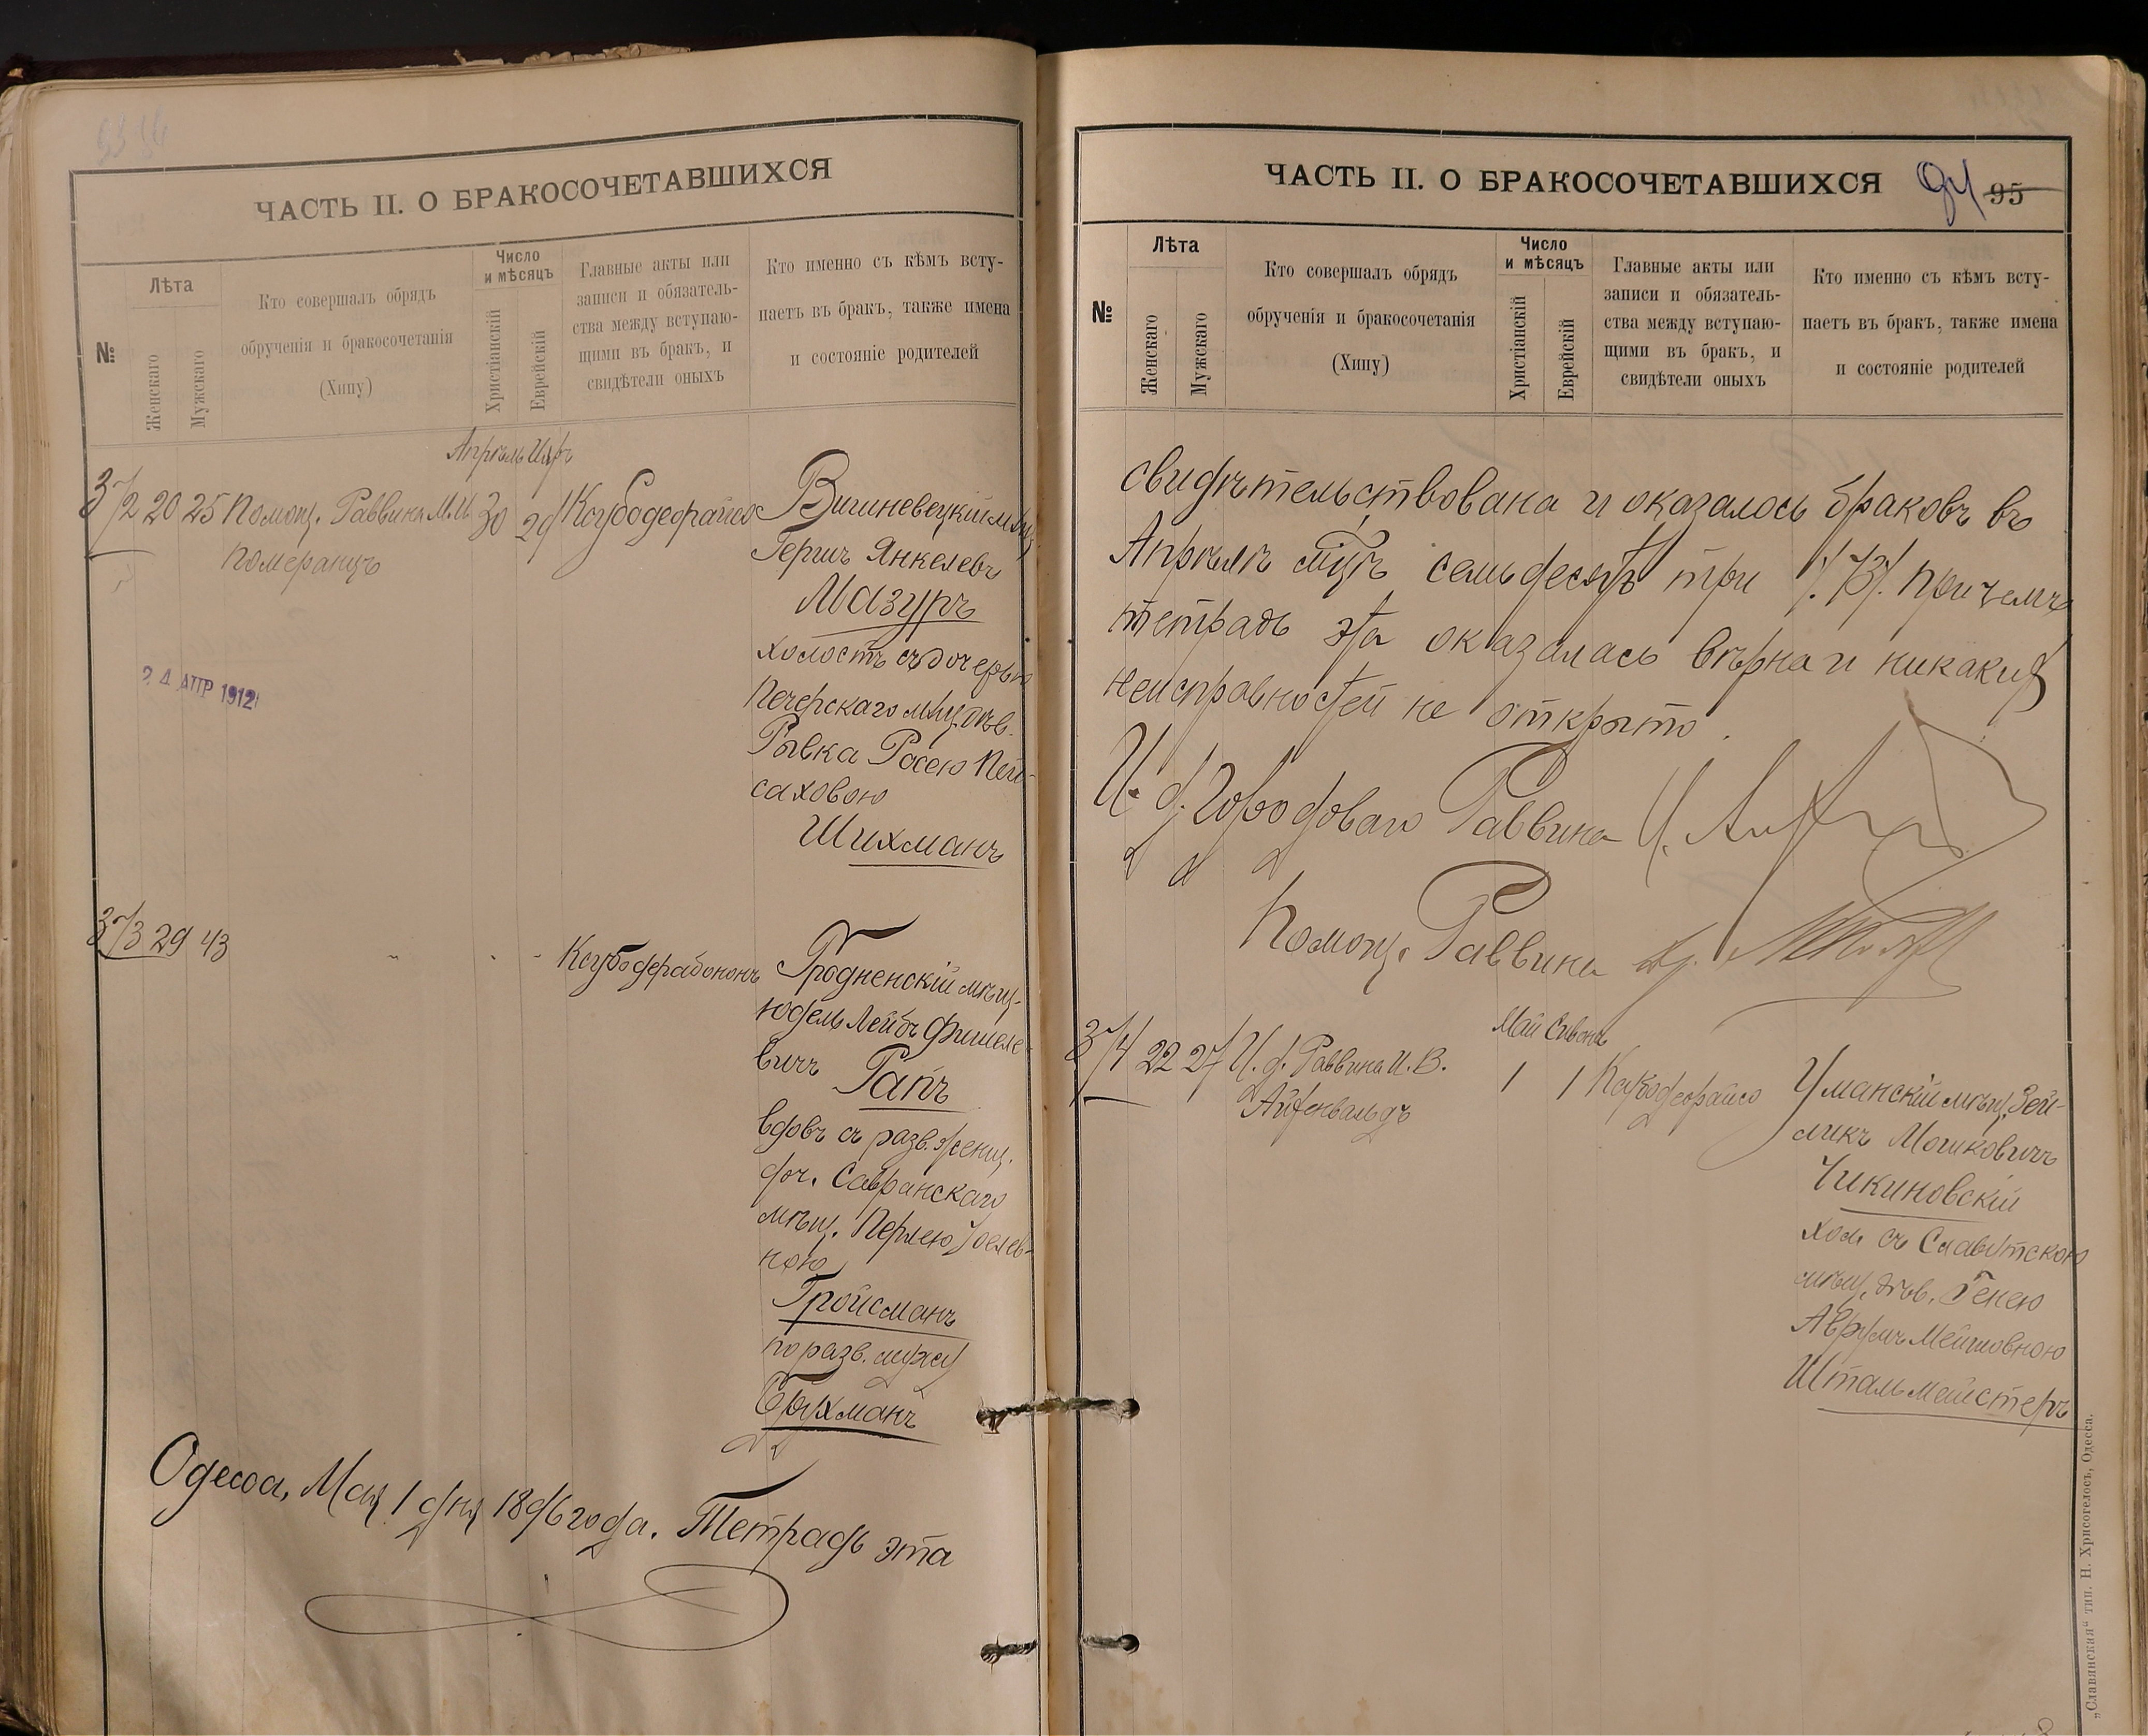 ЧАСТЬ II. О БРАКОСОЧЕТАВШИХСЯ
№
Лѣта
Женскаго
Мужскаго
Кто совершалъ обрядъ
обрученія и бракосочетанія
(Хипу)
Число
и мѣсяцъ
Христіанскій
Еврейскій
Главные акты или
записи и обязатель-
ства между вступаю-
щими въ бракъ, и
свидѣтели оныхъ
Кто именно съ кѣмъ всту-
паетъ въ бракъ, также имена
и состояніе родителей
Апрѣль Іиръ
372 20 25 Помощ. Раввина М.И. 30 29
Померанцъ
24 АПР 1912
Вишневецкій мѣщ
Гершъ Янкелевъ
Мазуръ
холостъ съ дочерью
Печерскаго мѣщ. дѣв.
Рывка Расею Пей-
саховою
Шихманъ
373 29 43
Гродненскій мѣщ-
Юдель Лейбъ Фишеле-
вичъ Рапъ
вдовъ съ разв. женщ.
доч. Савранскаго
мѣщ. Перлею
ною
Гройсманъ
по разв. мужу
Брухманъ
Одесса, Мая 1 дня 1896 года. Тетрадь эта
ЧАСТЬ II. О БРАКОСОЧЕТАВШИХСЯ
94 95
№
Лѣта
Женскаго
Мужскаго
Кто совершалъ обрядъ
обрученія и бракосочетанія
(Хипу)
Число
и мѣсяцъ
Христіанскій
Еврейскій
Главные акты или
записи и обязатель-
ства между вступаю-
щими въ бракъ, и
свидѣтели оныхъ
Кто именно съ кѣмъ всту-
паетъ въ бракъ, также имена
и состояніе родителей
свидѣтельствована и оказалось браковъ въ
Апрѣлѣ мцѣ семьдесятъ три /73/. При чемъ
тетрадь эта оказалась вѣрна и никакихъ
неисправностей не открыто.
И. д. Городоваго Раввина
Помощ. Раввина
Май Сивонъ
374 22 27 И. д. Раввина И. В. 1 1
Айзенвальдъ
Уманскій мѣщ. Зей-
ликъ Мошковичъ
Чикиновскій
хол. съ Славитскою
мѣщ. дѣв. Генею
Аврумъ Мейшовною
Штальмейстеръ
„Славянская“ тип. Н. Хрисогелосъ, Одесса.